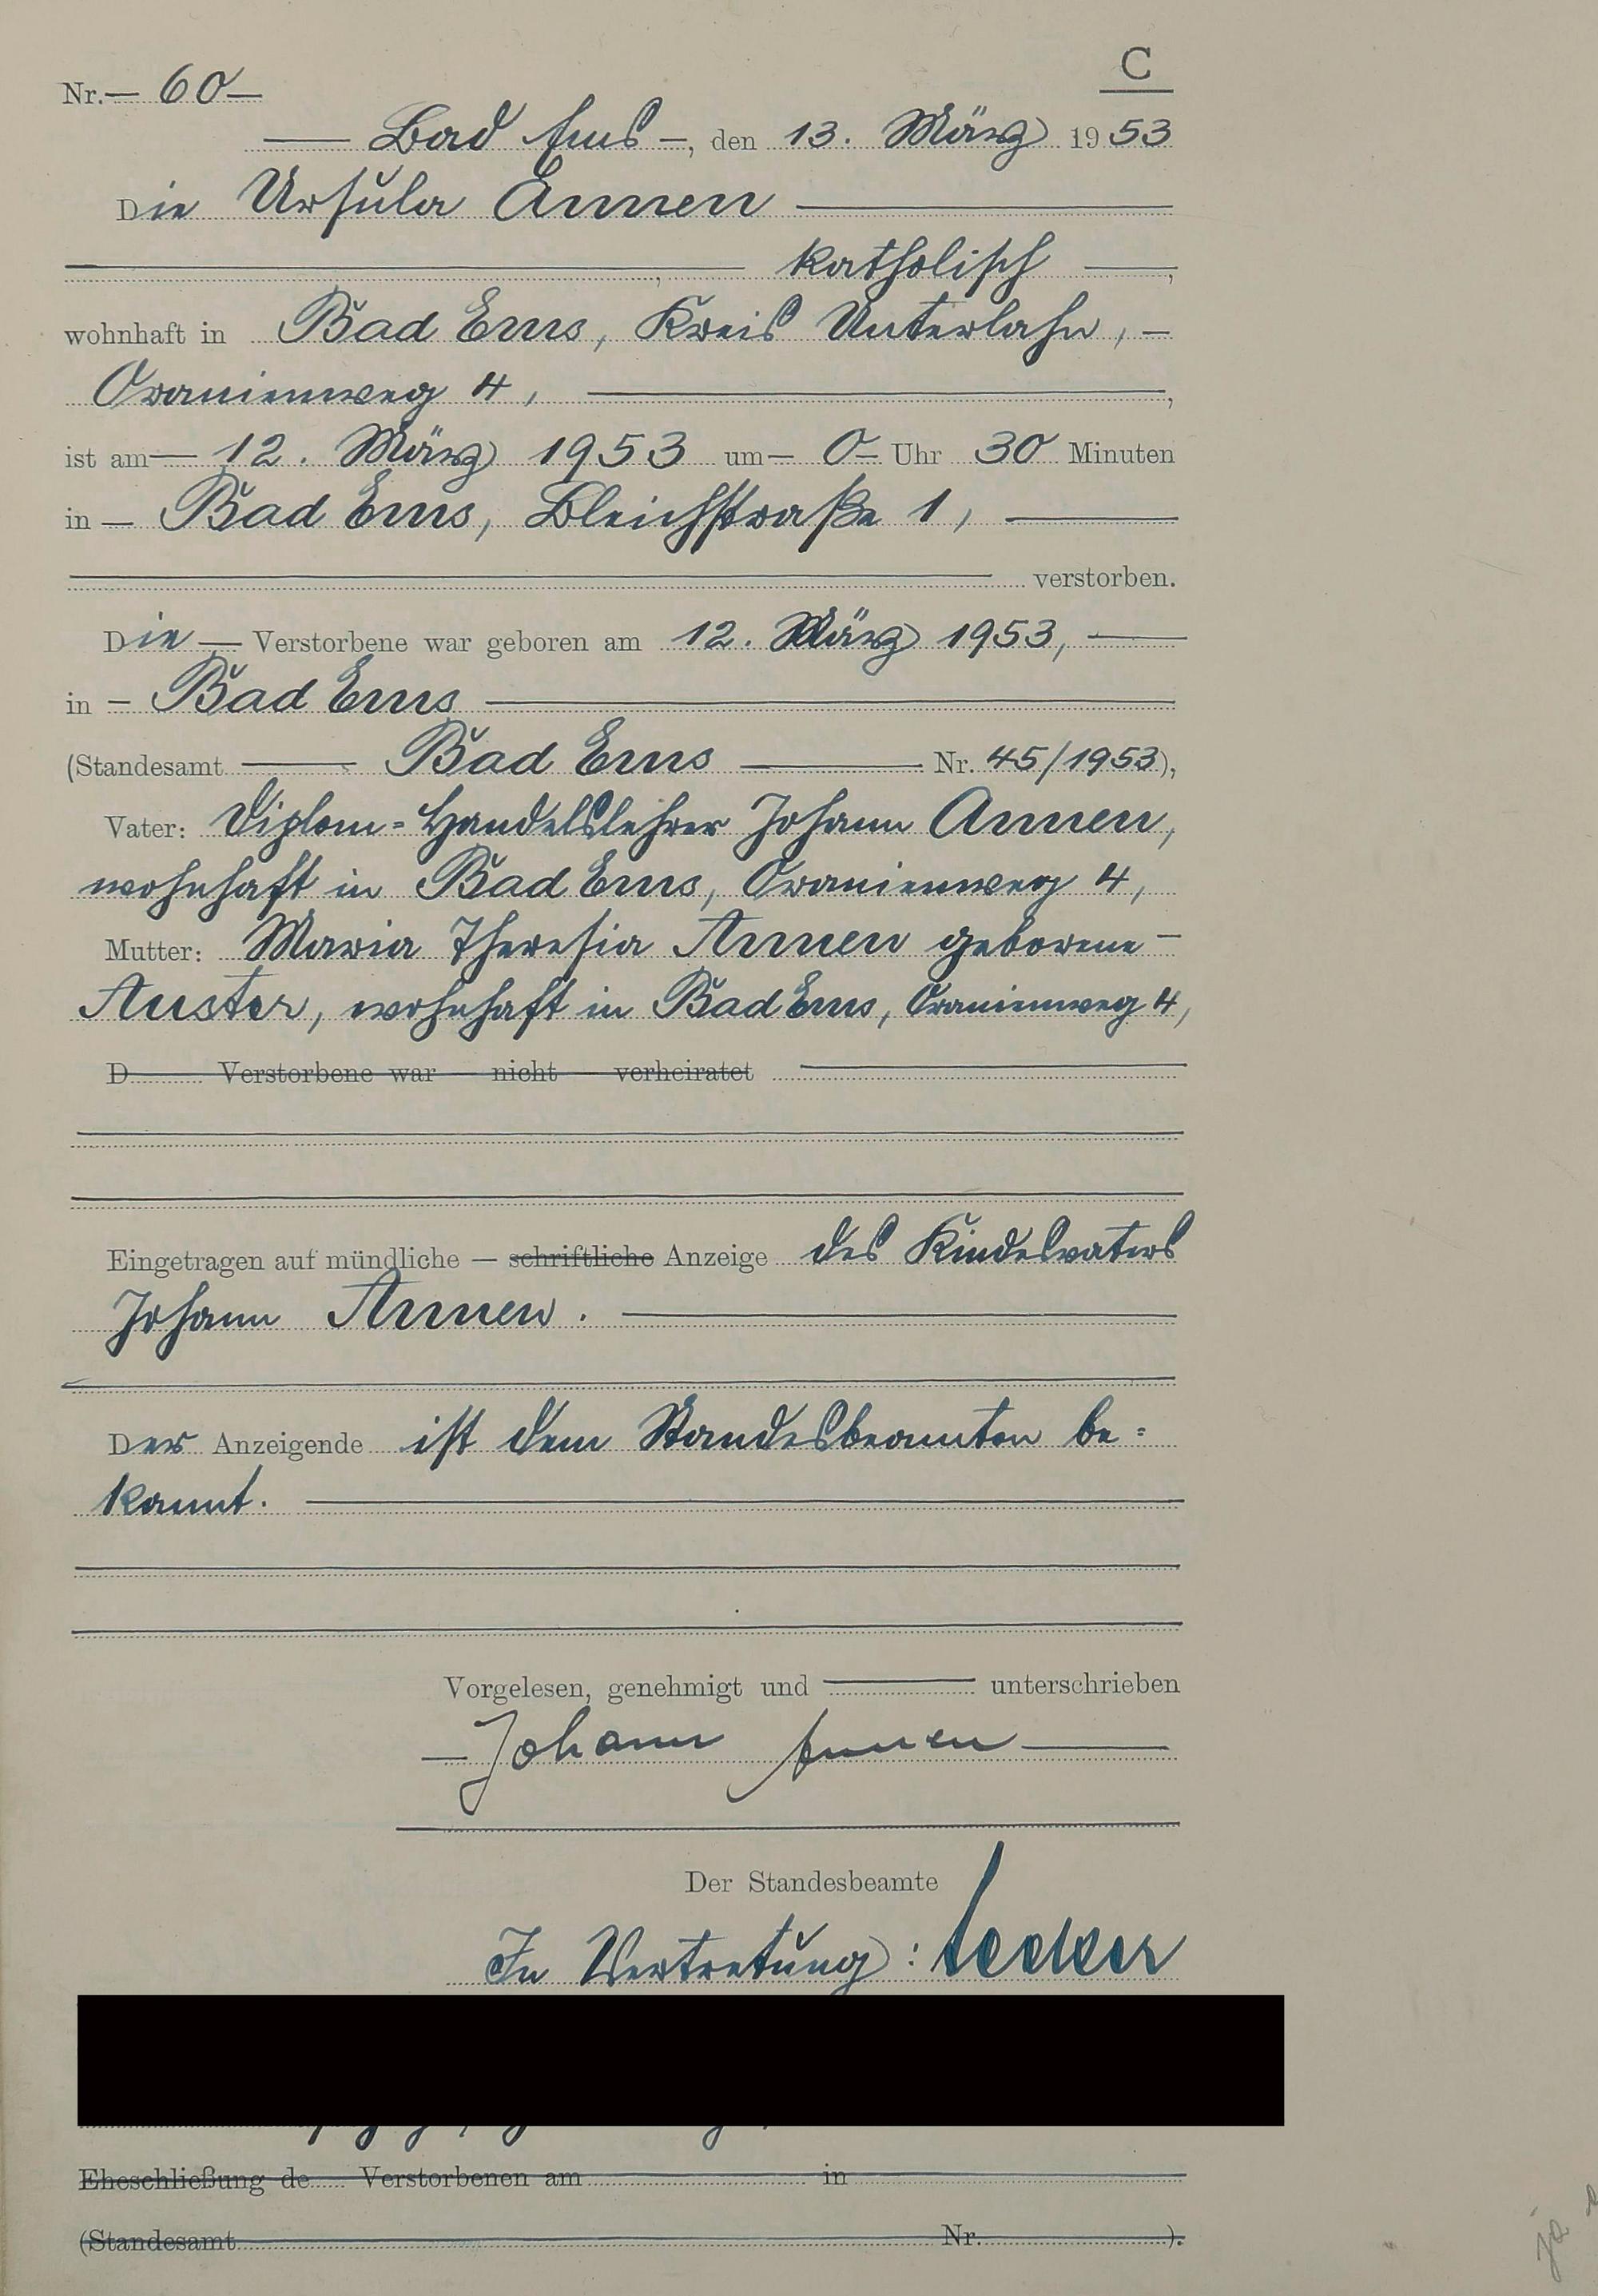 C
Nr. 60
Bad Ems, den 13. März 1953
Die Ursula Annen
, katholisch,
wohnhaft in Bad Ems, Kreis Unterlahn,
Oranienweg 4,
ist am 12. März 1953 um 0 Uhr 30 Minuten
in Bad Ems, Bleichstraße 1,
verstorben.
Die Verstorbene war geboren am 12. März 1953,
in Bad Ems
(Standesamt Bad Ems Nr. 45/1953),
Vater: Diplom=Handelslehrer Johann Annen,
wohnhaft in Bad Ems, Oranienweg 4,
Mutter: Maria Theresia Annen geborene
Auster, wohnhaft in Bad Ems, Oranienweg 4,
D Verstorbene war nicht verheiratet
Eingetragen auf mündliche – schriftliche Anzeige des Kindesvaters
Johann Annen.
Der Anzeigende ist dem Standesbeamten be=
kannt.
Vorgelesen, genehmigt und unterschrieben
Johann Annen
Der Standesbeamte
In Vertretung:
Eheschließung de Verstorbenen am in
(Standesamt Nr. ).